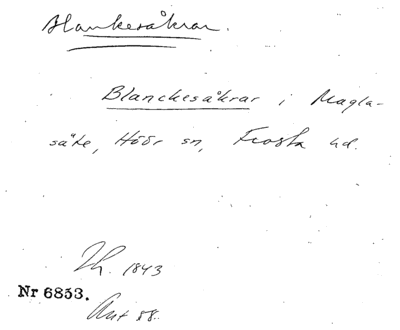 Blankesåkrar.
Blanckesåkrar i Magla-
säte, Höör sn, Frosta hd.
Th. 1843
Nr 6853.
Ant 58.